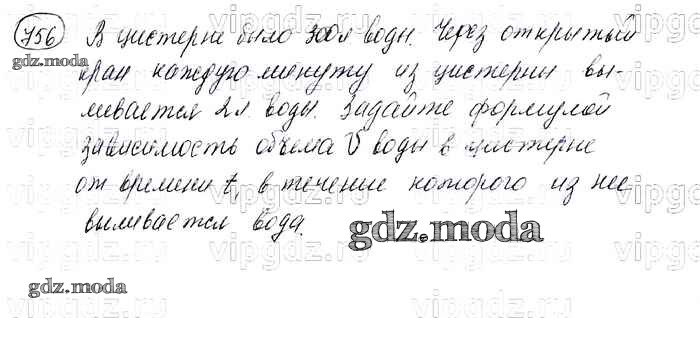 756 В цистерне было 300л воды. Через открытый
gdz.moda
кран каждую минуту из цистерны вы-
ливается 2л. воды. Задайте формулой
зависимость объема V воды в цистерне
от времени t, в течение которого из нее
выливается вода.
gdz.moda
gdz.moda
vipgdz.ru